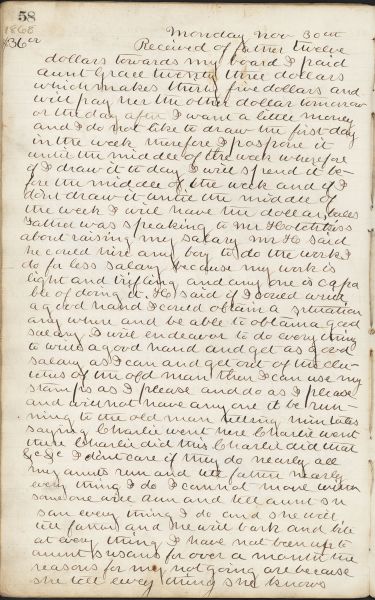 58
1868
$36.00
Monday Nov 30th
Received of father twelve
dollars towards my board I paid
aunt Grace twenty three dollars
which makes thirty five dollars and
will pay her the other dollar tomorrow
or the day after I want a little money
and I do not like to draw the first day
in the week therefore I pospone it
until the middle of the week wherefore
if I draw it to day I will spend it be-
fore the middle of the week and if I
dont draw it until the middle of
the week I will have the dollar
father was speaking to Mr Hotchkiss
about raising my salary Mr H said
he could hire any boy to do the work I
do for less salary because my work is
light and trifling and any one is capa
ble of doing it. He said if I could write
a good hand I could obtain a situation
any where and be able to obtain a good
salary I will endeavor to do every thing
to write a good hand and get as good
salary as I can and get out of the clu-
tches of the old man then I can use my
stamps as I please and do as I please
and will not have any one it be run-
ning to the old man telling him tales
saying Charlie went here Charlie went
there Charlie did this Charlie did that
&c &c I dont care if they do nearly all
my aunts run and tell father nearly
every thing I do I cannot move when
someone will run and tell aunt Su
san every thing I do and she will
tell father and he will bark and bite
at every thing I have not been up to
aunt susans for over a month the
reasons for me not going are because
she tell every thing she knows